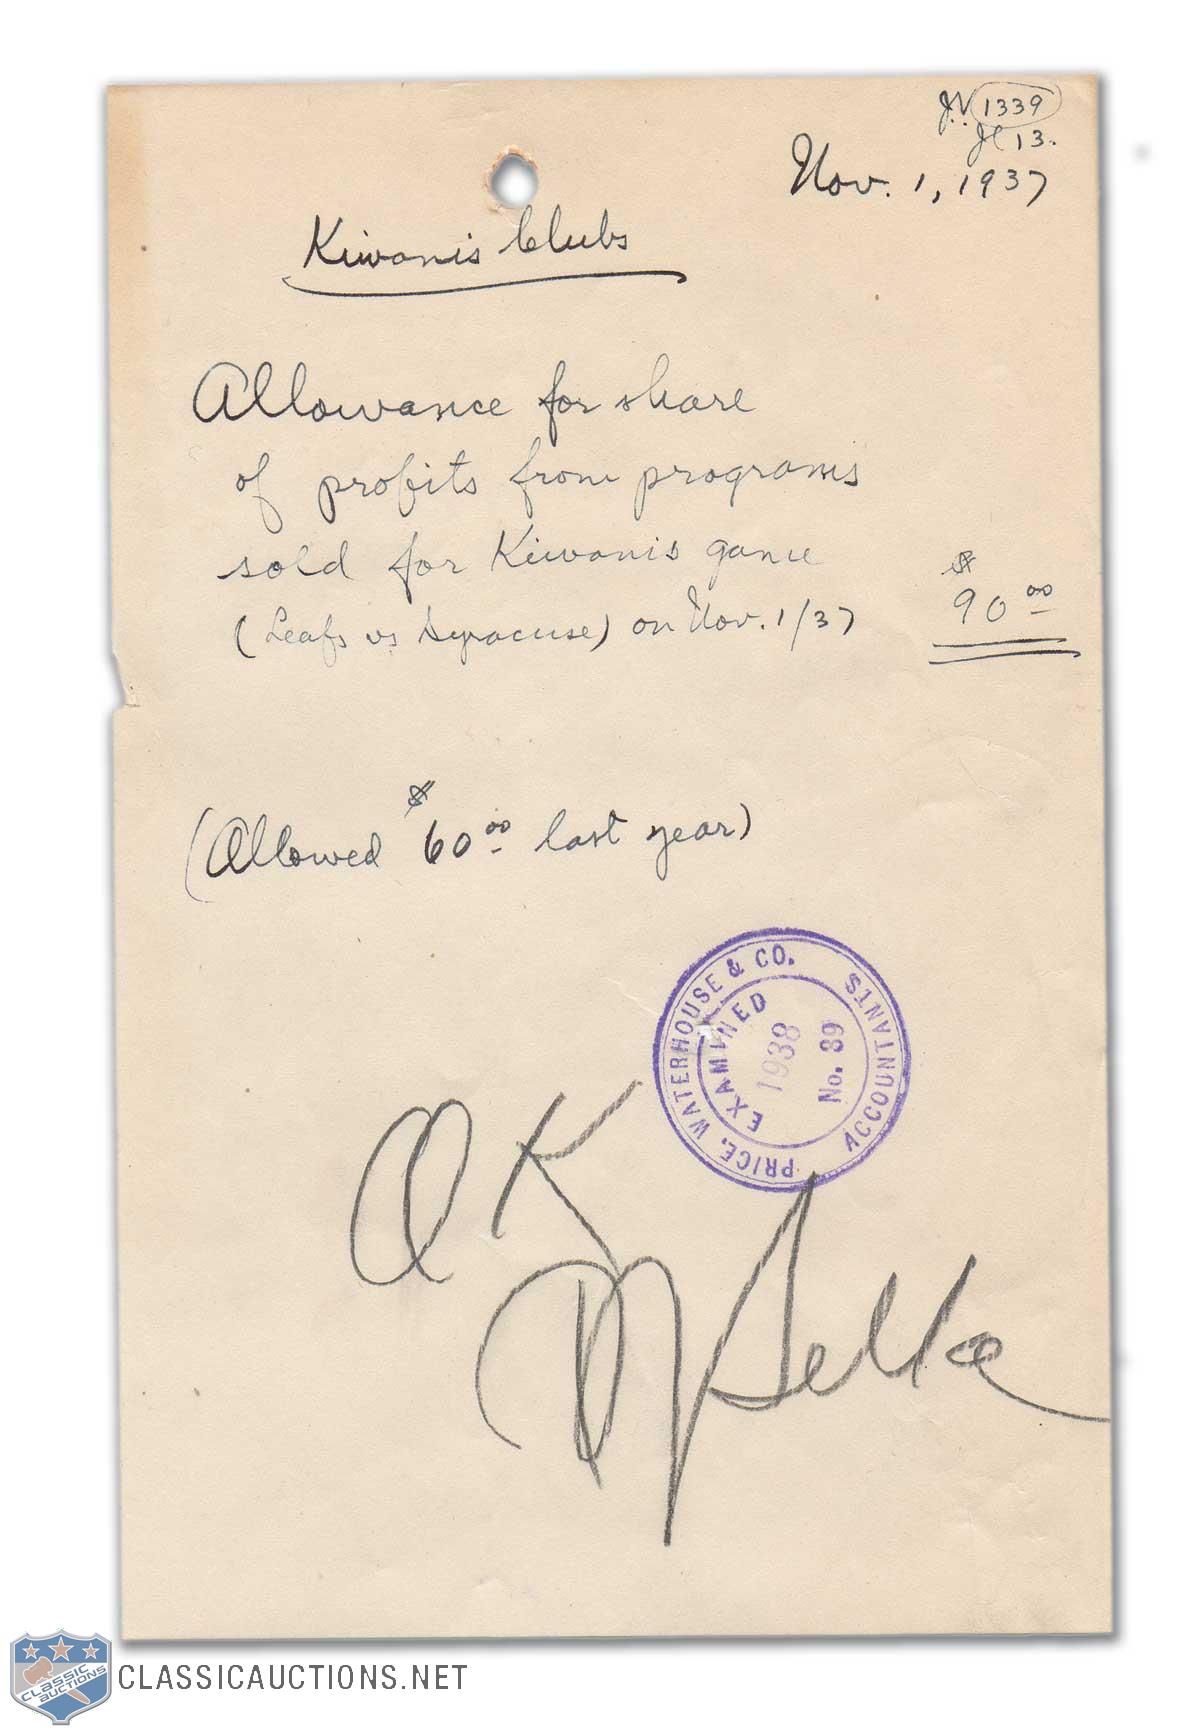 J.V. 1339
Jl 13.
Nov. 1, 1937
Kiwanis Clubs
Allowance for share
of profits from programs
sold for Kiwanis game
(Leafs vs Syracuse) on Nov. 1/37 $90.00
(Allowed $60.00 last year)
PRICE, WATERHOUSE & CO.
ACCOUNTANTS
EXAMINED
1938
No. 39
OK
Selke
CLASSIC AUCTIONS
CLASSICAUCTIONS.NET